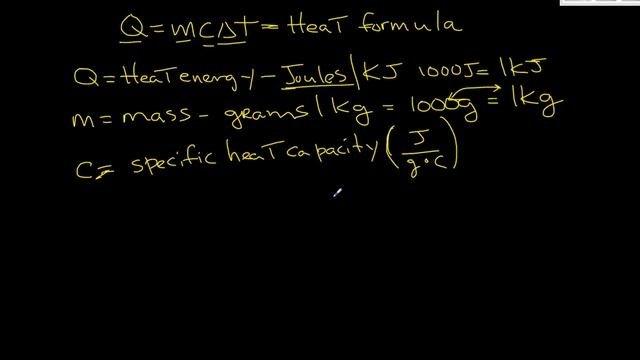 Q = mcΔt = Heat formula
Q = Heat energy - Joules/KJ 1000J = 1KJ
m = mass - grams/kg = 1000g = 1kg
C = specific heat capacity (J/g°C)